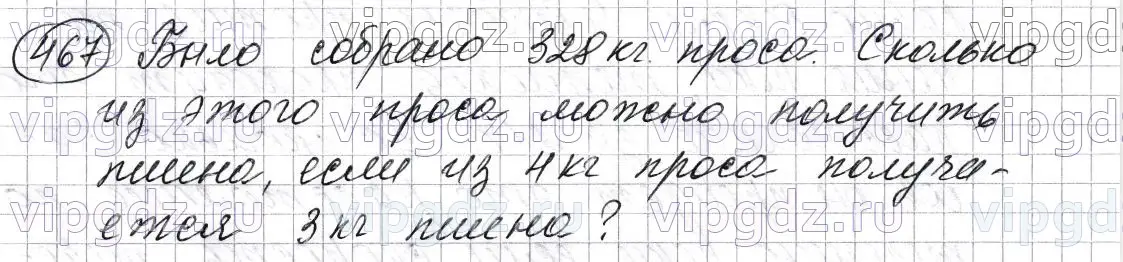 467 Было собрано 328 кг. проса. Сколько
из этого проса можно получить
пшена, если из 4 кг проса получа-
ется 3 кг пшена?
vipgdz.ru vipgdz.ru vipgdz.ru vipgd
vipgdz.ru vipgdz.ru vipgdz.ru vipgd
vipgdz.ru vipgdz.ru vipgdz.ru vipgd
vipgdz.ru vipgdz.ru vipgdz.ru vipgd